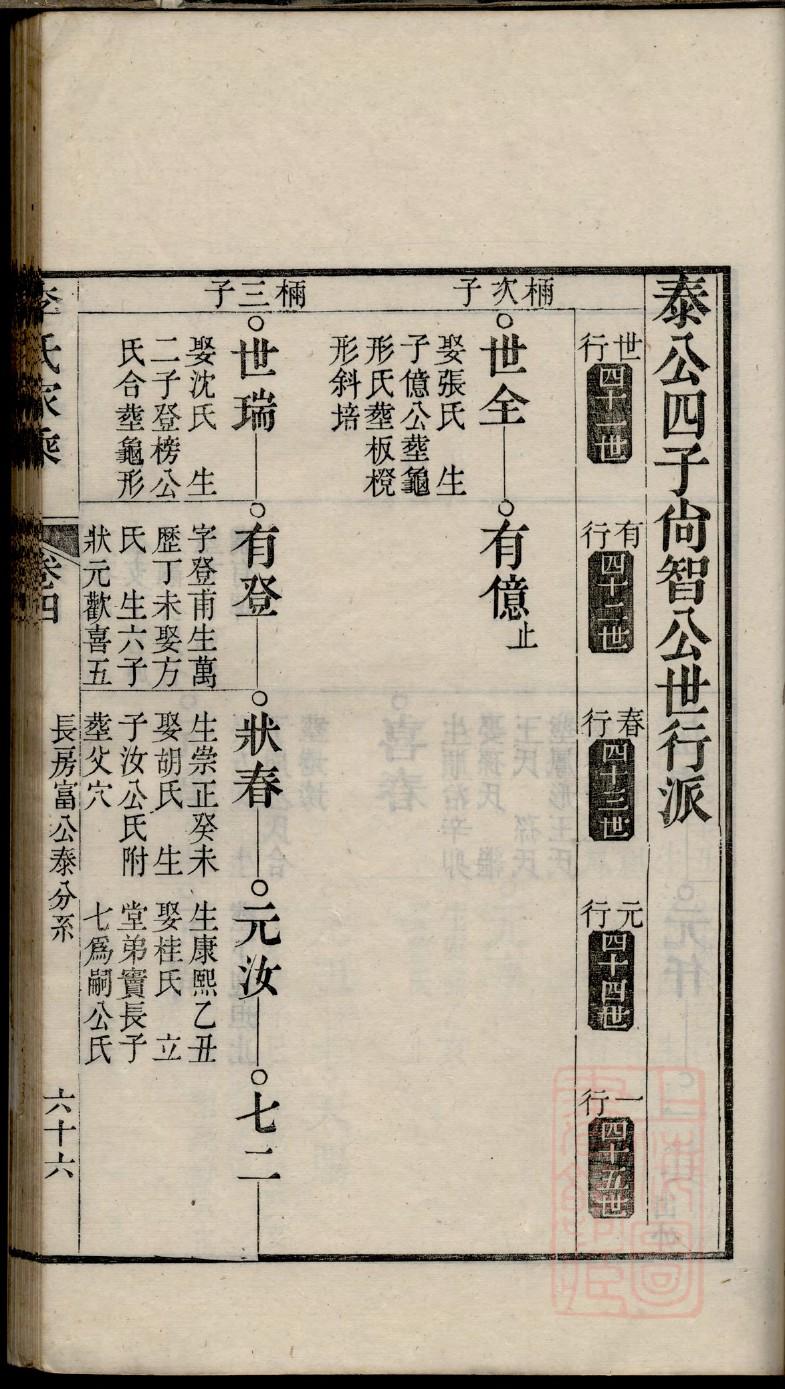 泰公四子尙智公世行派
世行
四十一世
有行
四十二世
春行
四十三世
元行
四十四世
一行
四十五世
檷次子
世全
娶張氏 生
子億公塟龜
形氏塟板櫈
形斜培
有億止
檷三子
世瑞
娶沈氏 生
二子登榜公
氏合塟龜形
有登
字登甫生萬
歷丁未娶方
氏 生六子
狀元歡喜五
狀春
生崇正癸未
娶胡氏 生
子汝公氏附
塟父穴
元汝
生康熙乙丑
娶桂氏 立
堂弟寶長子
七爲嗣公氏
七二
李氏家乘
卷四
長房富公泰分系
六十六